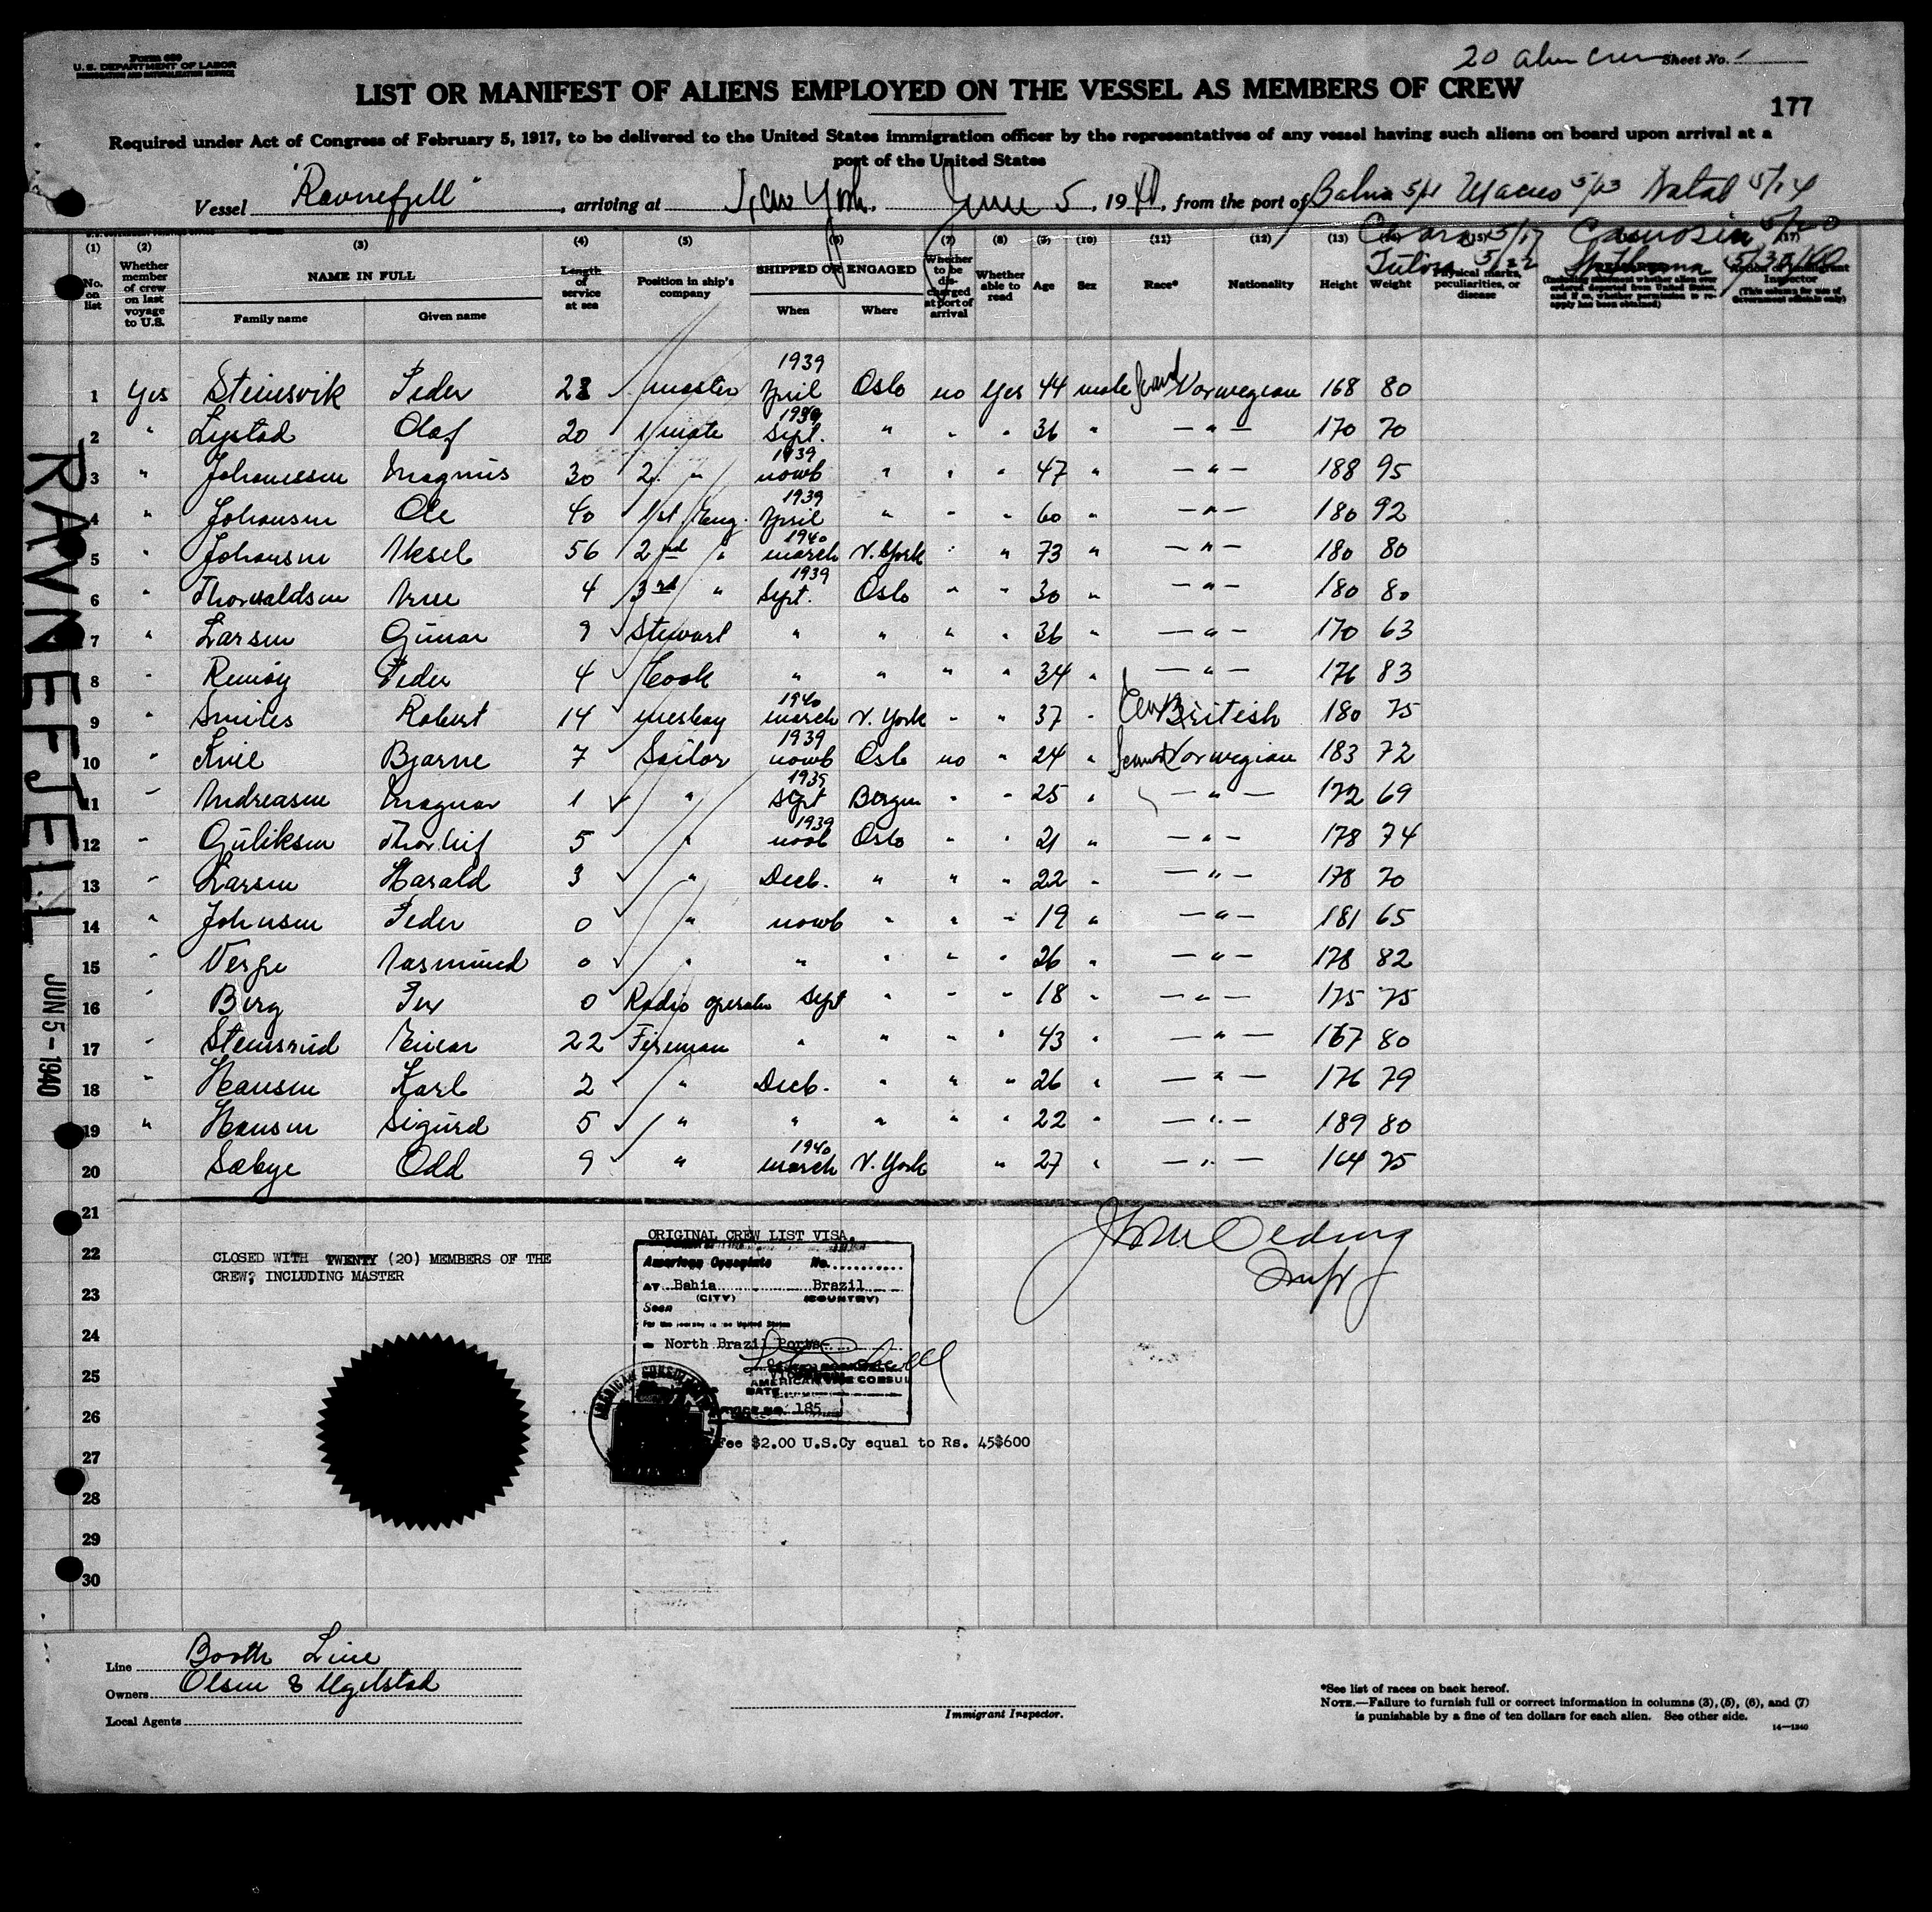 Form 680
U. S. DEPARTMENT OF LABOR
IMMIGRATION AND NATURALIZATION SERVICE
20 alien crew Sheet No. 1
LIST OR MANIFEST OF ALIENS EMPLOYED ON THE VESSEL AS MEMBERS OF CREW
177
Required under Act of Congress of February 5, 1917, to be delivered to the United States immigration officer by the representatives of any vessel having such aliens on board upon arrival at a
port of the United States
Vessel "Ravnefjell", arriving at New York. June 5, 1940, from the port of Bahia 5/11 Maceo 5/13 Natal 5/14
Ceara 5/17 Camosin 5/20
Tutoia 5/22 St Thomas 5/30/40
(1) (2) (3) (4) (5) (6) (7) (8) (9) (10) (11) (12) (13) (14) (15) (17)
No. on list
Whether member of crew on last voyage to U.S.
NAME IN FULL
Family name Given name
Length of service at sea
Position in ship's company
SHIPPED OR ENGAGED
When Where
Whether to be discharged at port of arrival
Whether able to read
Age Sex Race* Nationality Height Weight
Physical marks, peculiarities, or disease
(Including statement whether alien ever ordered deported from United States, and if so, whether permission to reapply has been obtained)
Action of Immigrant Inspector
(This column for use of Government officials only)
1 Yes Steinsvik Peder 28 master 1939 April Oslo no Yes 44 male Scand Norwegian 168 80
2 " Lystad Olaf 20 1/mate 1939 Sept. " " " 36 " — " — 170 70
3 " Johanessen Magnus 30 2. " 1939 novb " " " 47 " — " — 188 95
4 " Johansen Ole 40 1st Eng. 1939 April " " " 60 " — " — 180 92
5 " Johansen Aksel 56 2nd " 1940 march N. York " " 73 " — " — 180 80
6 " Thorvaldsen Arne 4 3rd " 1939 Sept. Oslo " " 30 " — " 180 80
7 " Larsen Gunar 9 Stewart " " " " 36 " — " — 170 63
8 " Remöy Peder 4 Cook " " " " 34 " — " — 176 83
9 " Smiles Robert 14 messboy 1940 march N. York " " 37 " British 180 75
10 " Kvil Bjarne 7 Sailor 1939 novb Oslo no " 24 " Scand Norwegian 183 72
11 " Andreasen Magnar 1 " 1939 Sept Bergen " " 25 " — " — 172 69
12 " Guliksen Thorleif 5 " 1939 novb Oslo " " 21 " — " — 178 74
13 " Larsen Harald 3 " Decb. " " " 22 " — " — 178 70
14 " Johnsen Peder 0 " novb " " " 19 " — " — 181 65
15 " Verpe Aasmund 0 " " " " " 26 " — " — 178 82
16 " Berg Per 0 Radio operator Sept " " " 18 " — " — 175 75
17 " Stensrud Einar 22 Fireman " " " " 43 " — " — 167 80
18 " Hansen Karl 2 " Decb. " " " 26 " — " — 176 79
19 " Hansen Sigurd 5 " " " " " 22 " — " — 189 80
20 Sæbye Odd 9 " 1940 march N. York " 27 " — " — 164 75
21
22
23
24
25
26
27
28
29
30
RAVNEFJELL
JUN 5 - 1940
CLOSED WITH TWENTY (20) MEMBERS OF THE
CREW; INCLUDING MASTER
ORIGINAL CREW LIST VISA.
American Consulate No.
AT Bahia Brazil
(CITY) (COUNTRY)
Seen
For the journey to the United States
North Brazil Ports
AMERICAN VICE CONSUL
DATE
SERVICE NO. 185
AMERICAN CONSULATE
Fee $2.00 U.S.Cy equal to Rs. 45$600
Line Booth Line
Owners Olsen & Ugelstad
Local Agents
Immigrant Inspector.
*See list of races on back hereof.
NOTE.—Failure to furnish full or correct information in columns (3), (5), (6), and (7)
is punishable by a fine of ten dollars for each alien. See other side.
14—1240